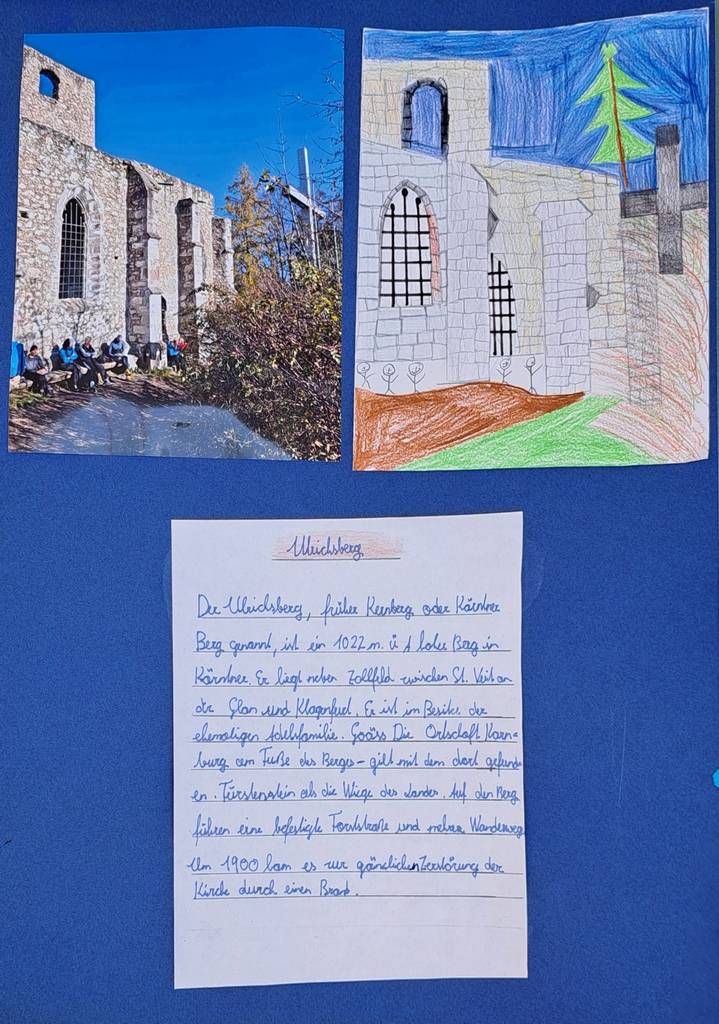 Ulrichsberg
Der Ulrichsberg, früher Kernberg oder Kärntner
Berg genannt, ist ein 1022 m. ü A hoher Berg in
Kärntner. Er liegt neben Zollfeld zwischen St. Veit an
der Glan und Klagenfurt. Er ist im Besitz der
ehemaligen Adelsfamilie. Goëss Die Ortschaft Karn=
burg am Fuße des Berges - gilt mit dem dort gefund
en. Fürstenstein als die Wiege des Landes. Auf den Berg
führen eine befestigte Forststraße und mehrere Wanderweg
Um 1900 kam es zur gänzlichen Zerstörung der
Kirche durch einen Brand.